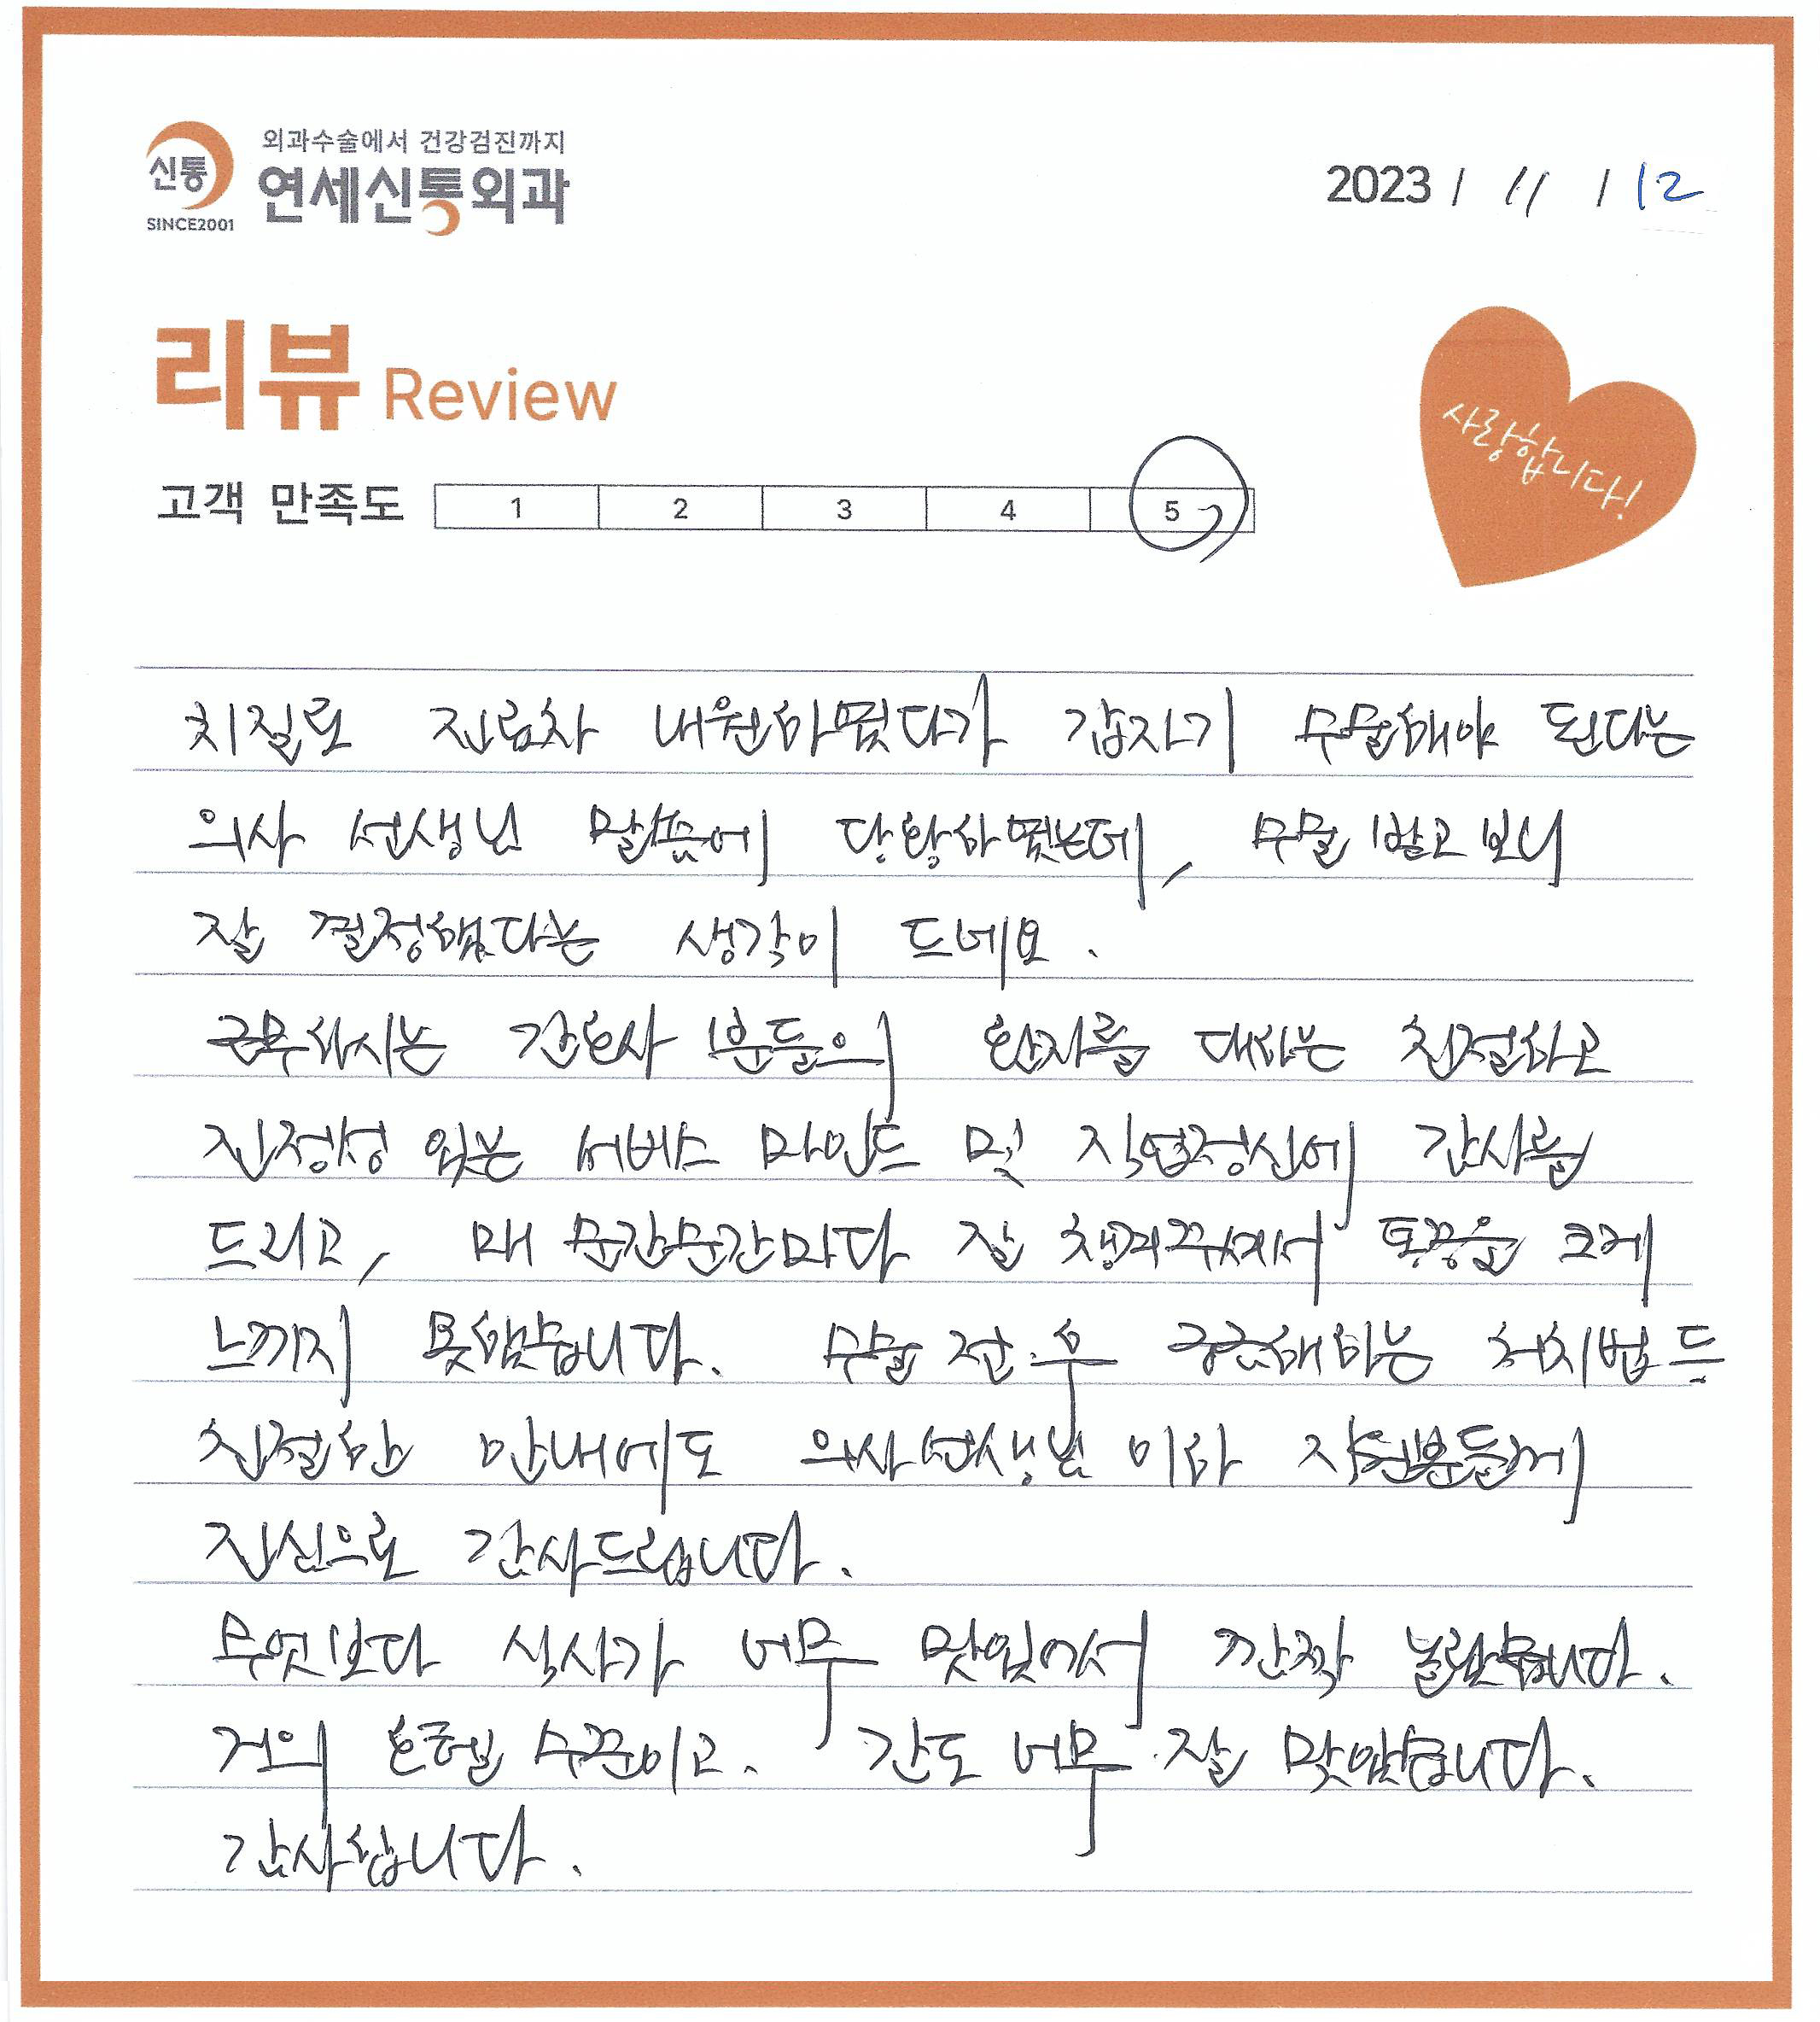 신통
SINCE2001
외과수술에서 건강검진까지
연세신통외과
2023 / 11 / 12
리뷰 Review
사랑합니다!
고객 만족도 1 2 3 4 5
치질로 진료차 내원하였다가 갑자기 수술해야 된다는
의사 선생님 말씀에 당황하였는데, 수술 받고 보니
잘 결정했다는 생각이 드네요.
근무하시는 간호사 분들의 환자를 대하는 친절하고
진정성 있는 서비스 마인드 및 직업정신에 감사를
드리고, 매 순간순간마다 잘 챙겨주셔서 통증을 크게
느끼지 못했습니다. 수술 전·후 궁금해하는 처치법 등
친절한 안내에도 의사선생님 이하 직원분들께
진심으로 감사드립니다.
무엇보다 식사가 너무 맛있어서 깜짝 놀랐습니다.
거의 호텔 수준이고. 간도 너무 잘 맞았습니다.
감사합니다.